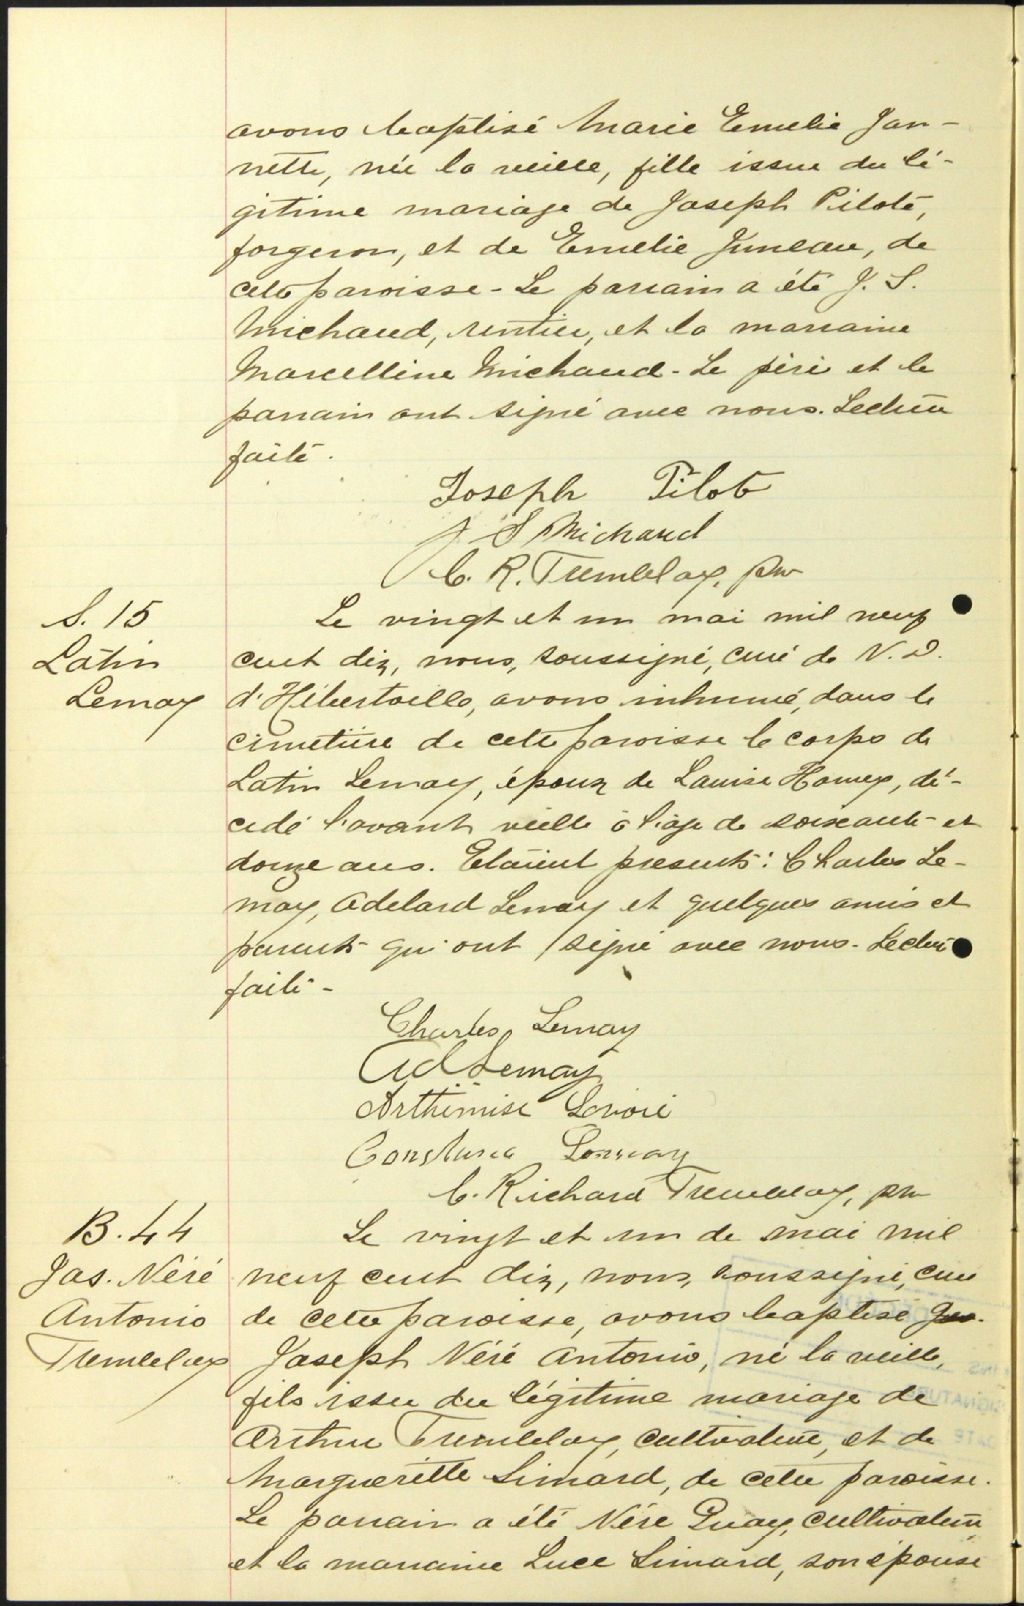 avons baptisé Marie Emelie Jan-
nette, née la veille, fille issue du lé-
gitime mariage de Joseph Pilote,
forgeron, et de Emelie Juneau, de
cette paroisse - Le parrain a été J. S.
Michaud, rentier, et la marraine
Marcelline Michaud - Le père et le
parrain ont signé avec nous. Lecture
faite.
Joseph Pilote
J S Michaud
C. R. Tremblay, ptre
S. 15
Latin
Lemay
Le vingt et un mai mil neuf
cent dix, nous, soussigné, curé de N. D.
d'Hébertville, avons inhumé, dans le
cimetière de cette paroisse le corps de
Latin Lemay, époux de Louise Harvey, dé-
cédé l'avant veille à l'age de soixante et
douze ans. Etaient presents: Charles Le-
may, Adelard Lemay et quelques amis et
parents qui ont signé avec nous - Lecture
faite -
Charles Lemay
Ad Lemay
Arthémise Lavoie
Constance Lemay
C. Richard Tremblay, ptre
B. 44
Jos. Néré
Antonio
Tremblay
Le vingt et un de mai mil
neuf cent dix, nous, soussigné, curé
de cette paroisse, avons baptisé
Joseph Néré Antonio, né la veille,
fils issu du légitime mariage de
Arthur Tremblay, cultivateur, et de
Marguerite Simard, de cette paroisse.
Le parrain a été Néré Guay, cultivateur
et la marraine Luce Simard, son épouse